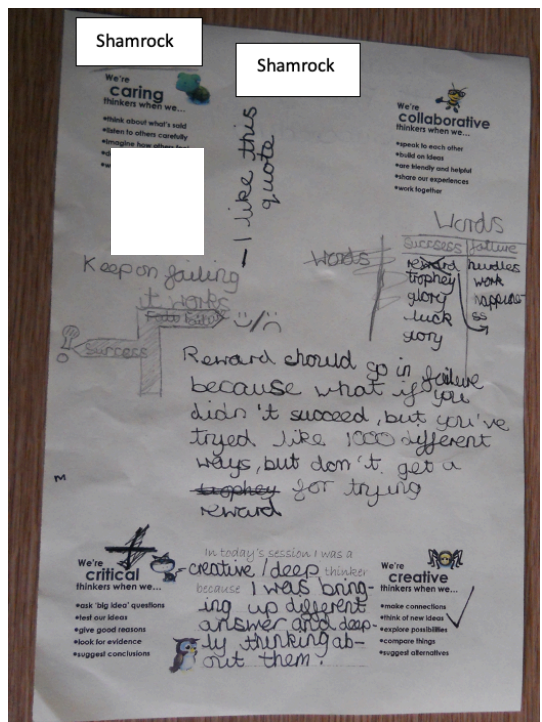 Shamrock
Shamrock
We're
caring
thinkers when we...
•think about what's said
•listen to others carefully
•imagine how others
— I like this
quote
We're
collaborative
thinkers when we...
•speak to each other
•build on ideas
•are friendly and helpful
•share our experiences
•work together
Keep on failing
it works
Success
Words
Words
Succsess failure
reward hurdles
trophey work
glory
luck
story
Reward should go in failure
because what if you
didn't succeed, but you've
tryed like 1000 different
ways, but don't get a
trophey for trying
reward
M
We're
critical
thinkers when we...
•ask 'big idea' questions
•test our ideas
•give good reasons
•look for evidence
•suggest conclusions
In today's session I was a
creative / deep thinker
because I was bring-
ing up different
answer and deep-
ly thinking ab-
out them.
We're
creative
thinkers when we...
•make connections
•think of new ideas
•explore possibilities
•compare things
•suggest alternatives